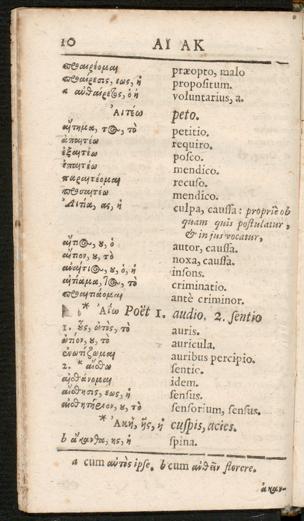 10 ΑΙ ΑΚ
προαιρέομαι præopto, malo
προαίρεσις, εως, ἡ propositum.
a αὐθαίρετος, ὁ ἡ voluntarius, a.
Αἰτέω peto.
αἴτημα, τος, τὸ petitio.
ἀπαιτέω requiro.
ἐξαιτέω posco.
ἐπαιτέω mendico.
παραιτέομαι recuso.
προσαιτέω mendico.
Αἰτία, ας, ἡ culpa, caussa: propriè ob
quam quis postulatur,
& in jus vocatur,
αἴτιος, ου, ὁ autor, caussa.
αἴτιον, ου, τὸ noxa, caussa.
ἀναίτιος, ου, ὁ, ἡ insons.
αἰτίαμα, τος, τὸ criminatio.
προαιτιάομαι antè criminor.
* Ἀΐω Poët 1. audio. 2. sentio
1. οὖς, ὠτὸς, τὸ auris.
ὠτίον, ου, τὸ auricula.
ἐνωτίζομαι auribus percipio.
2. * αἴσθω sentic.
αἰσθάνομαι idem.
αἴσθησις, εως, ἡ sensus.
αἰσθητήριον, ου, τὸ sensorium, sensus.
* Ἀκὴ, ῆς, ἡ cuspis, acies.
b ἄκανθα, ης, ἡ spina.
a cum αὐτὸς ipse. b cum ἀνθεῖν florere.
ἀκαν-